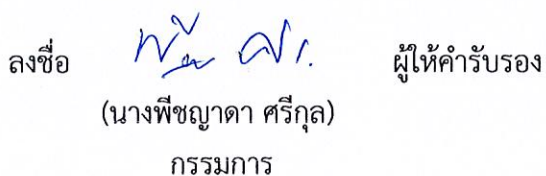 ลงชื่อ ผู้ให้คำรับรอง
(นางพีชญาดา ศรีกุล)
กรรมการ